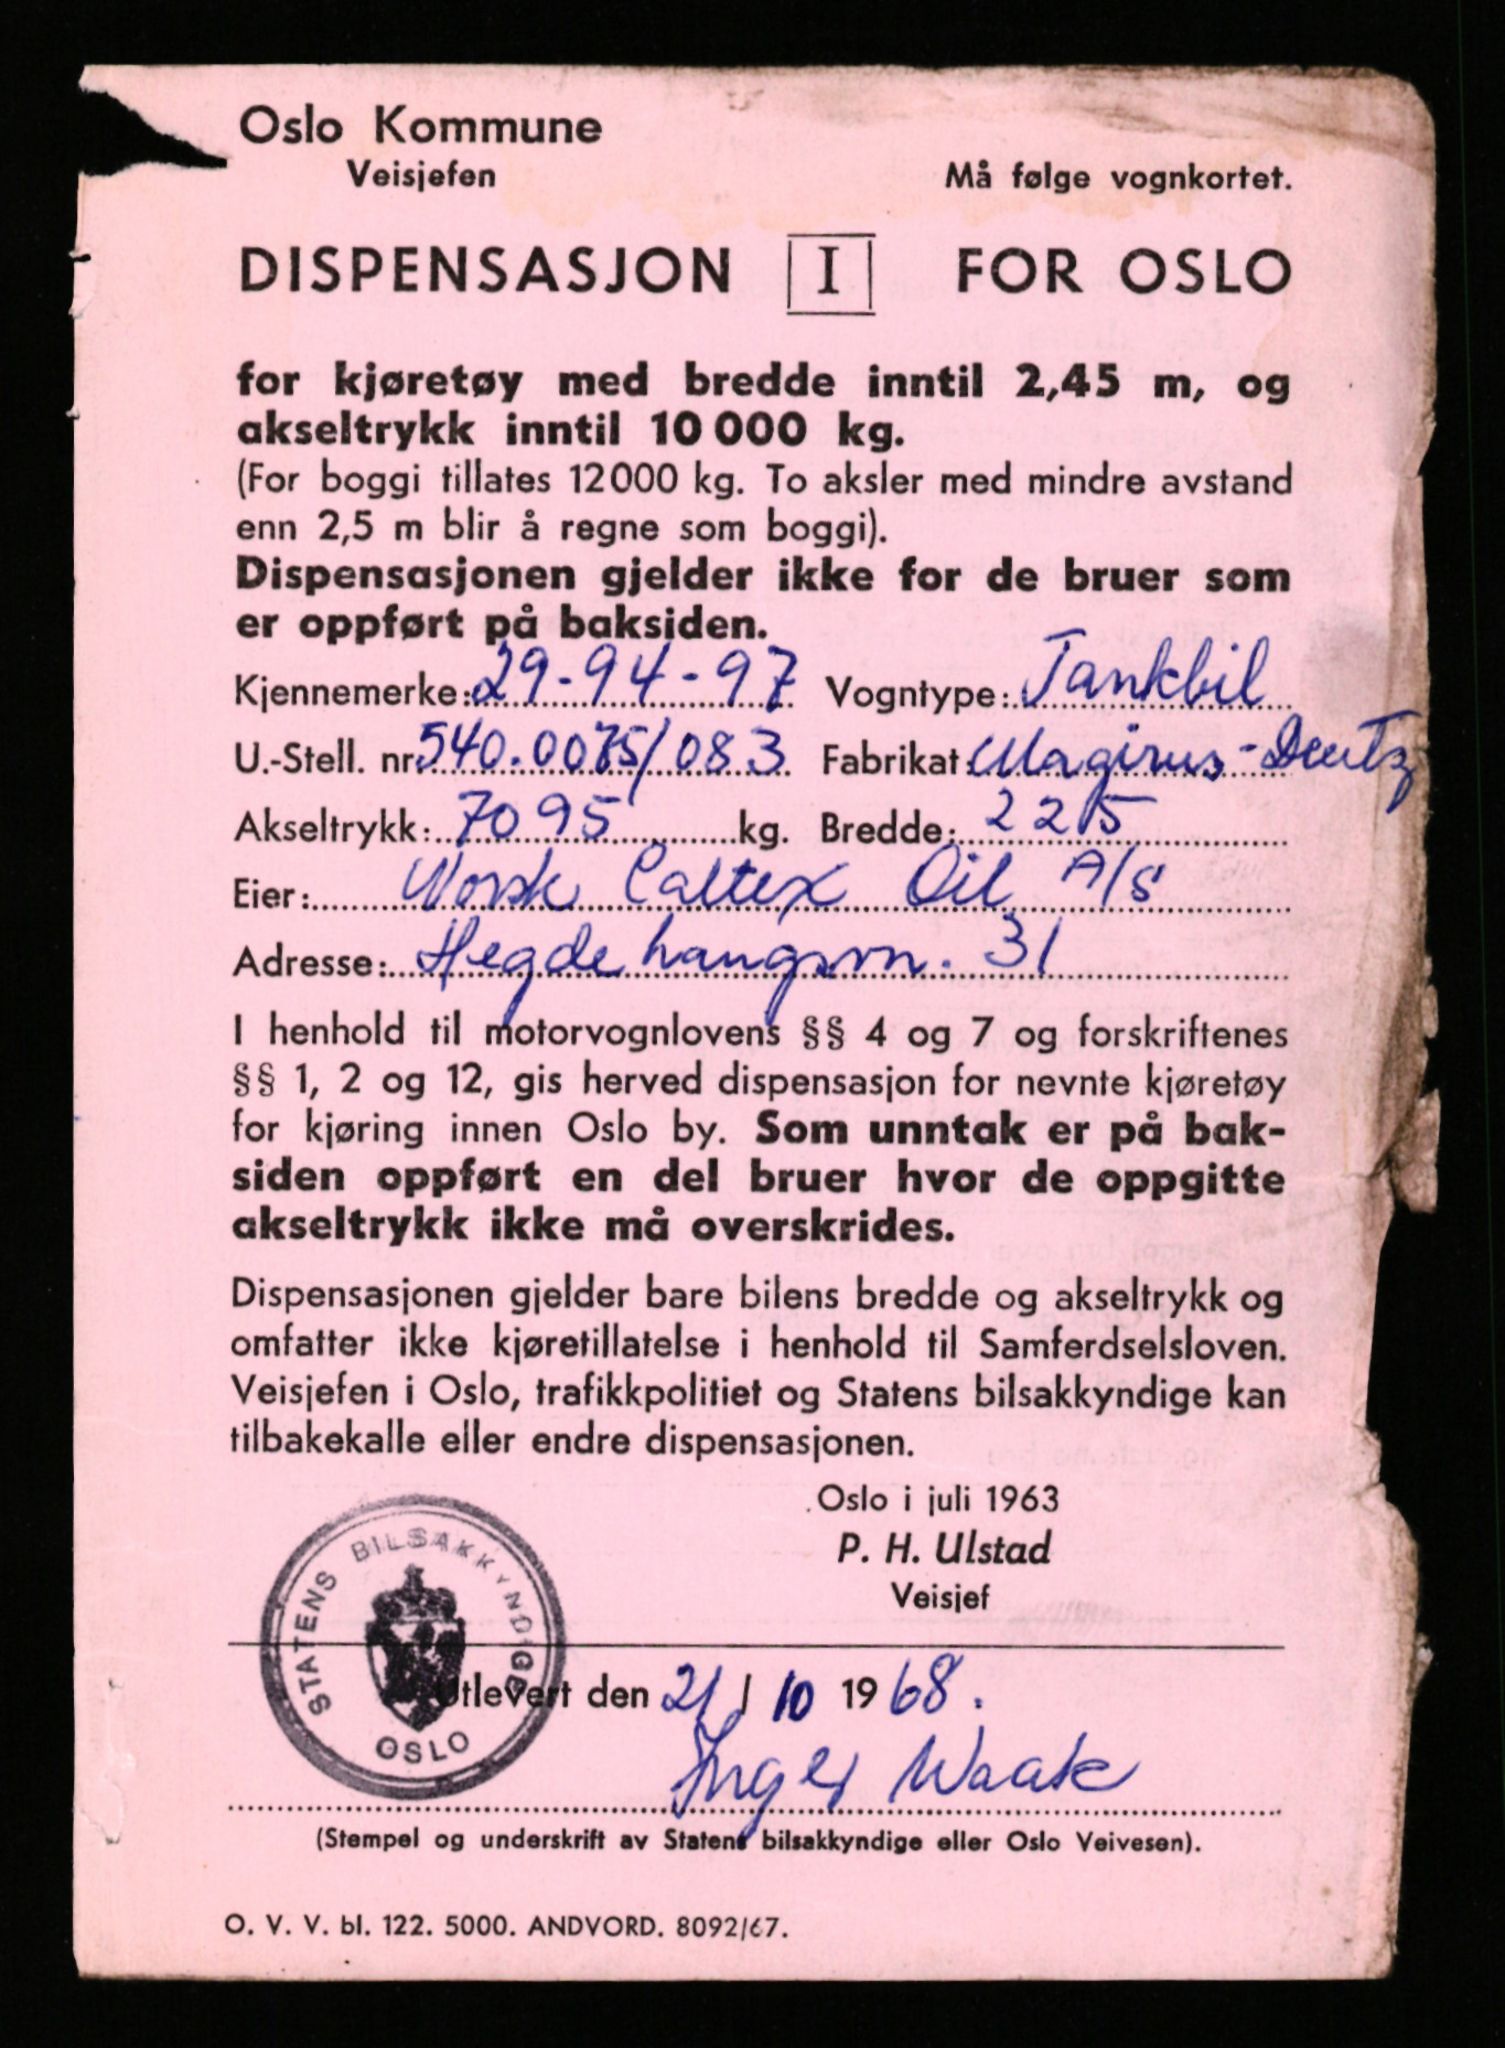 Oslo Kommune
Veisjefen
Må følge vognkortet.
DISPENSASJON I FOR OSLO
for kjøretøy med bredde inntil 2,45 m, og
akseltrykk inntil 10 000 kg.
(For boggi tillates 12000 kg. To aksler med mindre avstand
enn 2,5 m blir å regne som boggi).
Dispensasjonen gjelder ikke for de bruer som
er oppført på baksiden.
Kjennemerke: 29-94-97 Vogntype: Tankbil
U.-Stell. nr. 540.0075/083 Fabrikat: Magirus-Deutz
Akseltrykk: 7095 kg. Bredde: 225
Eier: Norsk Caltex Oil A/S
Adresse: Hegdehaugsvn. 31
I henhold til motorvognlovens §§ 4 og 7 og forskriftenes
§§ 1, 2 og 12, gis herved dispensasjon for nevnte kjøretøy
for kjøring innen Oslo by. Som unntak er på bak-
siden oppført en del bruer hvor de oppgitte
akseltrykk ikke må overskrides.
Dispensasjonen gjelder bare bilens bredde og akseltrykk og
omfatter ikke kjøretillatelse i henhold til Samferdselsloven.
Veisjefen i Oslo, trafikkpolitiet og Statens bilsakkyndige kan
tilbakekalle eller endre dispensasjonen.
Oslo i juli 1963
P. H. Ulstad
Veisjef
STATENS BILSAKKYNDIGE
OSLO
Utlevert den 21/10 1968.
Inger Waak
(Stempel og underskrift av Statens bilsakkyndige eller Oslo Veivesen).
O. V. V. bl. 122. 5000. ANDVORD. 8092/67.